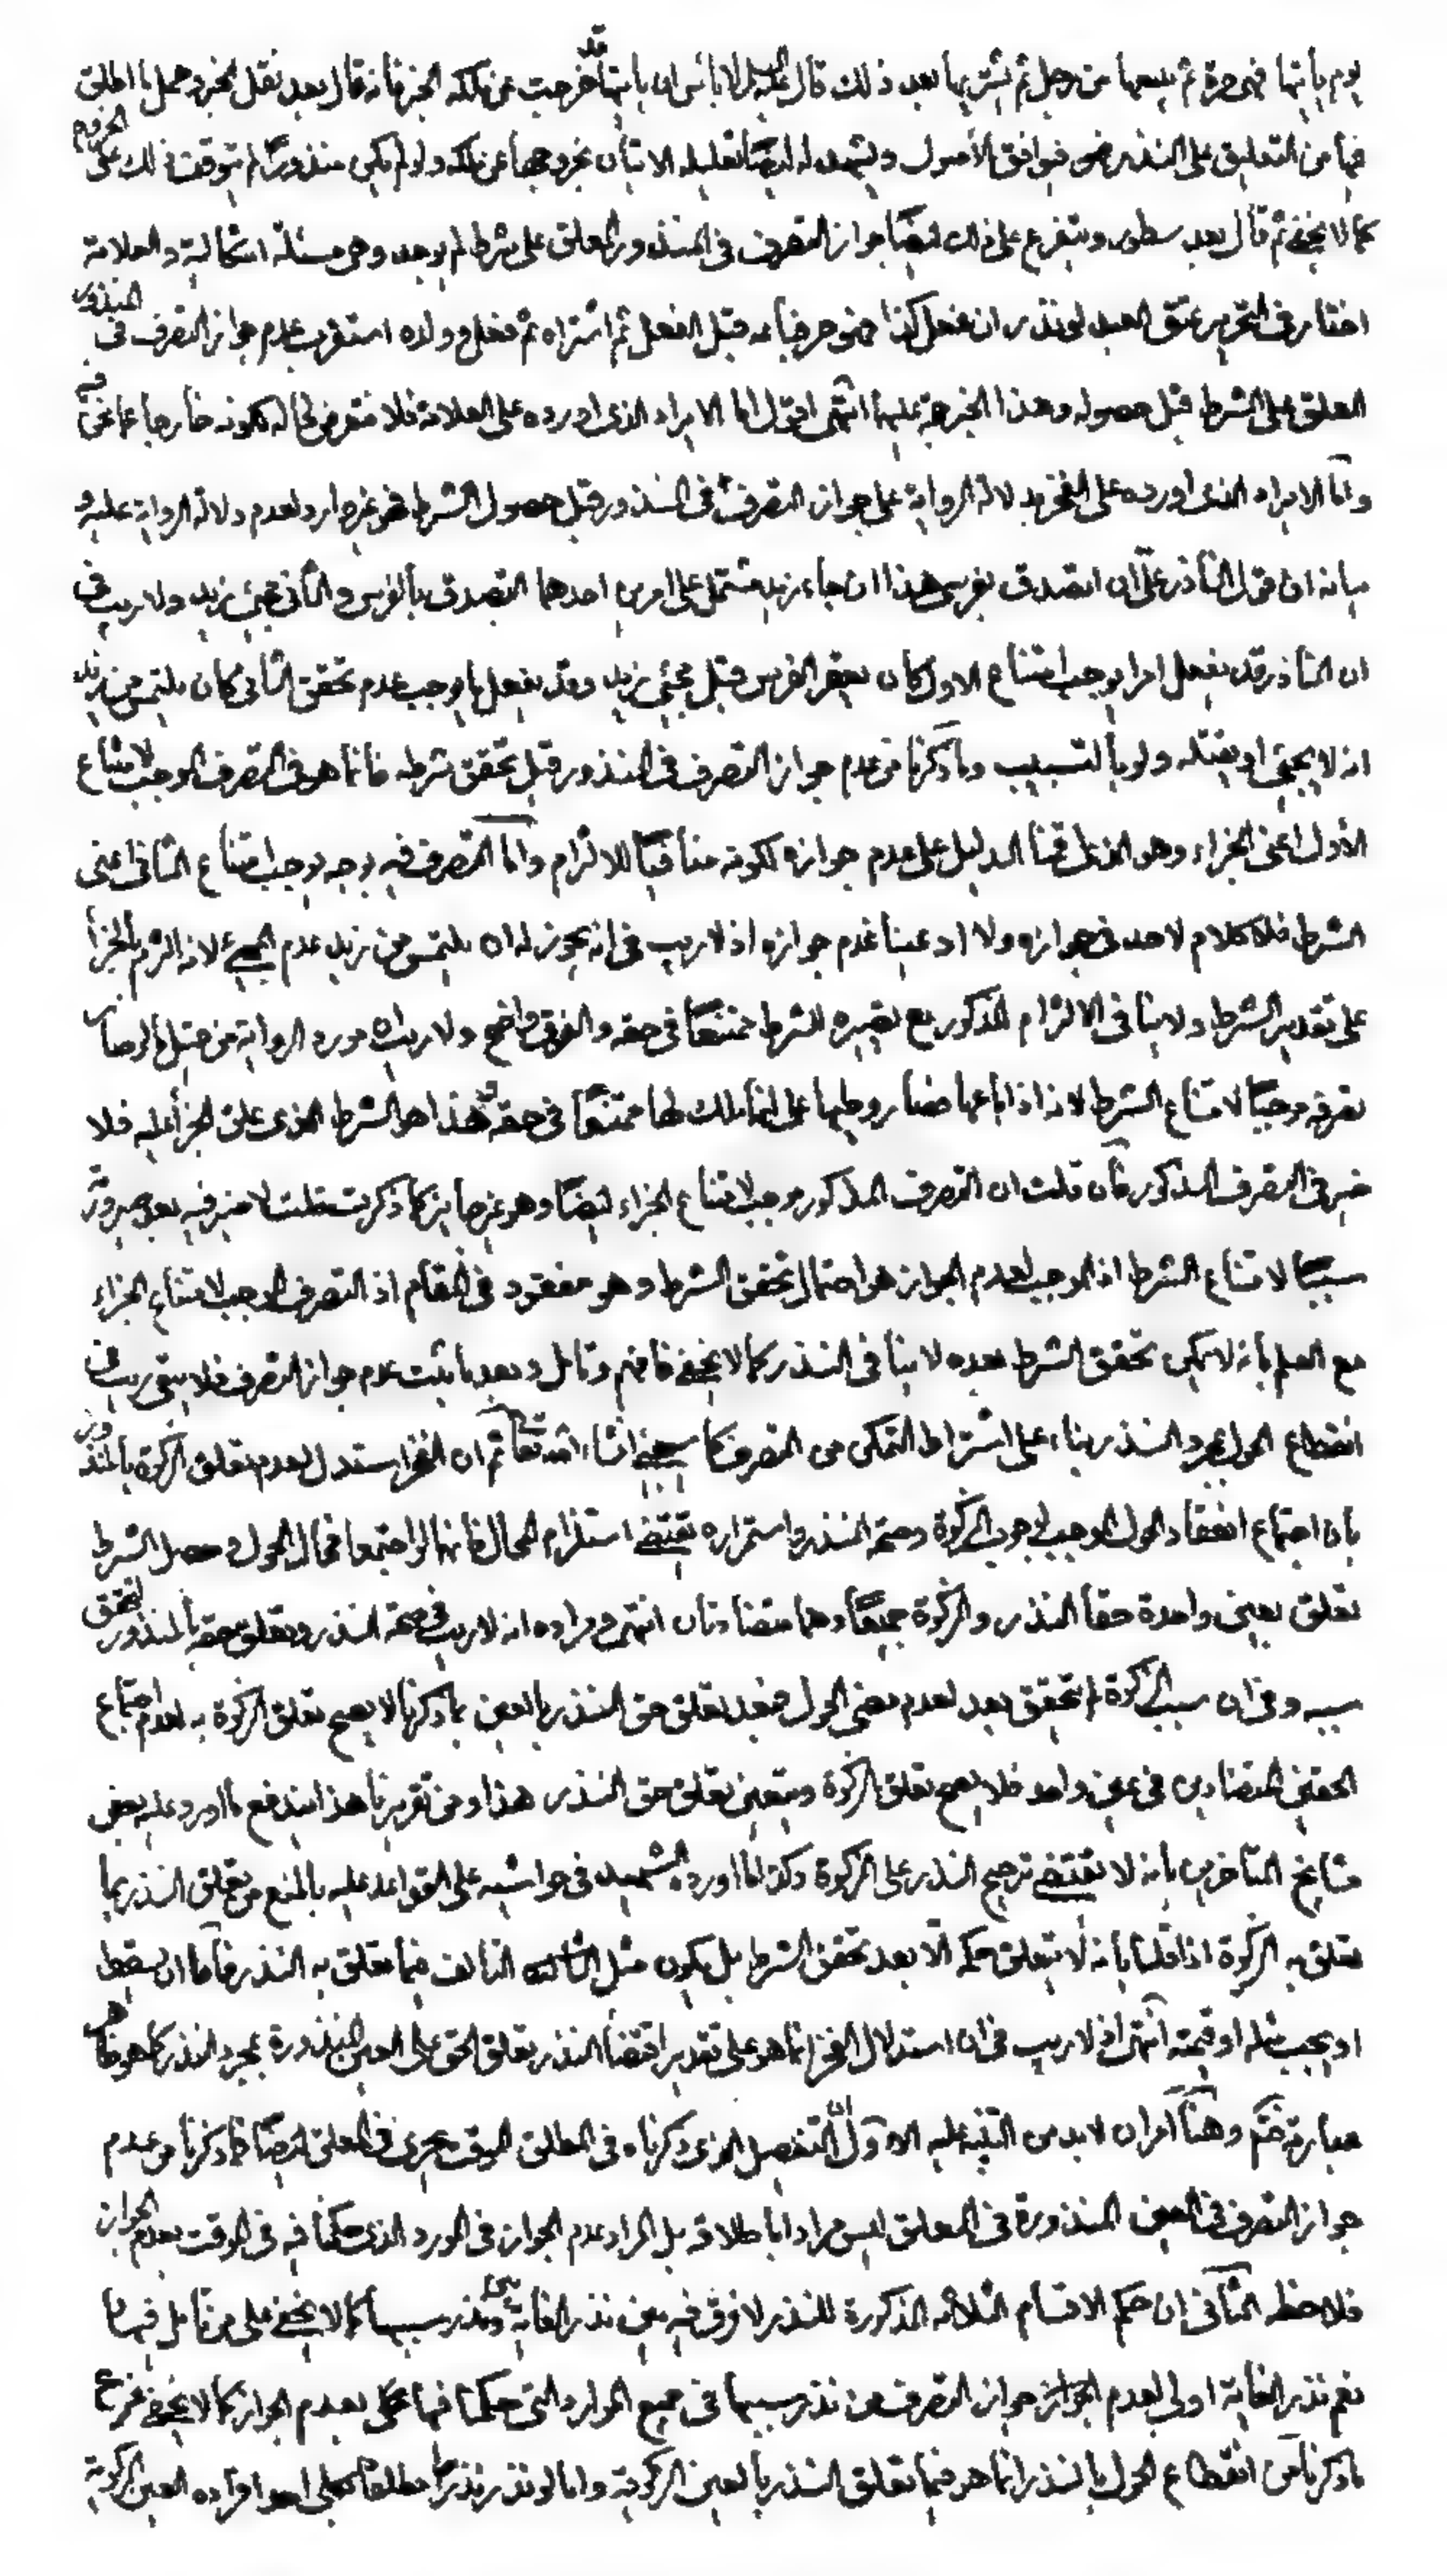 يوم يأتيها فهي حرة ثم يبيعها من رجل ثم يشتريها بعد ذلك قال لا بأس ان يأتيها قد خرجت عن ملكه الخبر فانه قال بعد نقل الخبر وحمل ما اطلق
فيها من التعليق على النذر فيوافق الأصول ويشهد له ايضًا تعليله الاتيان بخروجها عن ملكه ولو لم يكن منذورًا لم يتوقف ذلك على الخروج
كما لا يخفى ثم قال بعد سطور ويتفرع على ذلك ايضًا جواز التصرف في المنذور المعلق على شرط لم يوجد وهي مسئلة اشكالية والعلامة
اختار في التحرير عتق العبد لو نذر ان فعل كذا فهو حر فباعه قبل الفعل ثم اشتراه ثم فعل وولده استقرب عدم جواز التصرف في المنذور
المعلق على الشرط قبل حصوله وهذا الخبر حجة عليهما انتهى اقول اما الايراد الذي اورده على العلامة فلا نتعرض لحاله لكونه خارجا عما نحن فيه
واما الايراد الذي اورده على الفخر بدلالة الرواية على جواز التصرف في المنذور قبل حصول الشرط فهو غير وارد لعدم دلالة الرواية عليه و
بيانه ان قول الناذر علي ان اتصدق بفرسي هذا ان جاء زيد مشتمل على امرين احدهما التصدق بالفرس والثاني مجيئ زيد ولا ريب في
ان الناذر قد يفعل امرا يوجب امتناع الاول كان يعقر الفرس قبل مجيئ زيد وقد يفعل ما يوجب عدم تحقق الثاني كان يلتمس من زيد
انه لا يجيئ او يقتله ولو بالتسبيب وما ذكرنا من عدم جواز التصرف في المنذور قبل تحقق شرطه فانما هو في التصرف الموجب لامتناع
الأول اعني الجزاء وهو الذي اقمنا الدليل على عدم جوازه لكونه منافيًا للالتزام واما التصرف فيه بوجه يوجب امتناع الثاني اعني
الشرط فلا كلام لاحد في جوازه ولا ادعينا عدم جوازه اذ لا ريب في انه يجوز له ان يلتمس من زيد عدم المجيئ لانه التزم بالجزاء
على تقدير الشرط ولا ينافي الالتزام المذكور مع تصييره للشرط ممتنعًا في حقه والفرق واضح ولا ريب ان مورد الرواية من قبيل ما صار
تصرفه موجبًا لامتناع الشرط لانه اذا باعها صار وطيها على انها ملك لها ممتنعًا في حقه وهذا هو الشرط الذي علق الجزاء عليه فلا
ضير في التصرف المذكور فان قلت ان التصرف المذكور موجب لامتناع الجزاء ايضًا وهو غير جائز كما ذكرت قلت لا ضير فيه بعد صيرورته
سببًا لامتناع الشرط اذ الموجب لعدم الجواز هو احتمال تحقق الشرط وهو مفقود في المقام اذ التصرف الموجب لامتناع الجزاء
مع العلم بانه لا يمكن تحقق الشرط بعده لا ينافي النذر كما لا يخفى فافهم وتامل وبعد ما ثبت عدم جواز التصرف فلا يبقى ريب في
انقطاع الحول بمجرد النذر بناء على اشتراط التمكن من التصرف كما سيجئ انشاء الله تعالى ثم ان الفخر استدل لعدم تعلق الزكوة بالمنذور
بان اجتماع انعقاد الحول الموجب لوجوب الزكوة وصحة النذر واستمراره يقتضي استلزام المحال فانهما لو اجتمعا فحال الحول وحصل الشرط
تعلق بعين واحدة حقا النذر والزكوة جميعًا وهما متضادتان انتهى ومراده انه لا ريب في صحة النذر وتعلق حقه بالمنذور لتحقق
سببه وفي ان سبب الزكوة لم يتحقق بعد لعدم مضي الحول فبعد تعلق حق النذر بالعين بما ذكرنا لا يصح تعلق الزكوة به لعدم اجتماع
الحقين المتضادين في عين واحد فلا يصح تعلق الزكوة ويتعين تعلق حق النذر هذا ومن تقريرنا هذا يندفع ما اورد عليه بعض
مشايخ المتاخرين بانه لا يقتضي ترجيح النذر على الزكوة وكذا ما اورده الشهيد في حواشيه على القواعد عليه بالمنع من تعلق النذر بما
تعلق به الزكوة اذا قلنا بانه لا يتعلق حكم الا بعد تحقق الشرط بل يكون مثل التالف فيما تعلق به النذر فاما ان يسقط
او يجب مثله او قيمته انتهى اذ لا ريب في ان استدلال الفخر انما هو على تقدير اقتضاء النذر تعلق الحق على العين المنذورة بمجرد النذر كما هو ظاهر
عبارته ثم وهنا امران لا بد من التنبيه عليه الاول ان التفصيل الذي ذكرناه في المطلق الموقت يجري في المعلق ايضًا فما ذكرنا من عدم
جواز التصرف في العين المنذورة في المعلق ليس مرادا باطلاقه بل المراد عدم الجواز في المورد الذي حكمنا فيه في الموقت بعدم الجواز
فلاحظ الثاني ان حكم الاقسام الثلاثة المذكورة للنذر لا فرق فيه بين نذر الغاية ونذر سببها كما لا يخفى على من تامل فيها
نعم نذر الغاية اولى لعدم الجواز جواز التصرف من نذر سببها في جميع الموارد التي حكمنا فيها بعدم الجواز كما لا يخفى فرع
ما ذكرنا من انقطاع الحول بالنذر انما هو فيما تعلق النذر بالعين الزكوية واما لو نذر نذرًا مطلقًا كان احد افراده العين الزكوية